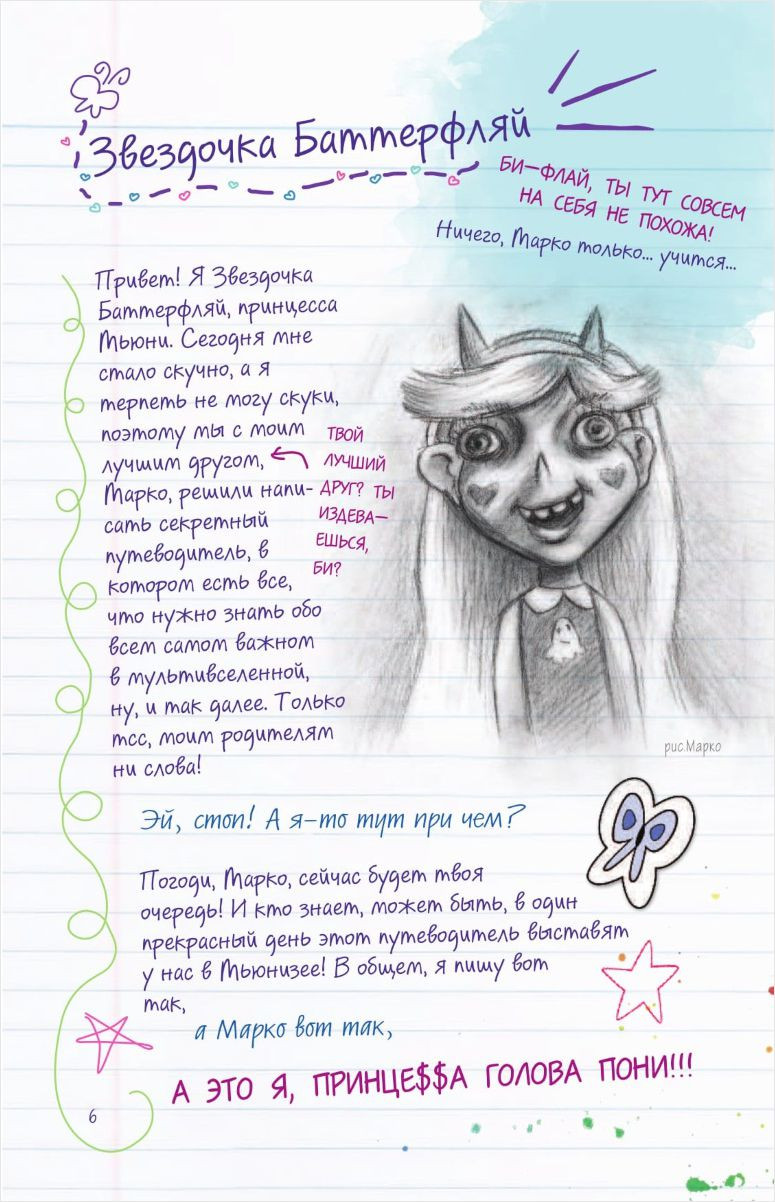 Звездочка Баттерфляй
БИ–ФЛАЙ, ТЫ ТУТ СОВСЕМ
НА СЕБЯ НЕ ПОХОЖА!
Ничего, Марко только... учится...
Привет! Я Звездочка
Баттерфляй, принцесса
Мьюни. Сегодня мне
стало скучно, а я
терпеть не могу скуки,
поэтому мы с моим
лучшим другом,
Марко, решили напи-
сать секретный
путеводитель, в
котором есть все,
что нужно знать обо
всем самом важном
в мультивселенной,
ну, и так далее. Только
тсс, моим родителям
ни слова!
ТВОЙ
ЛУЧШИЙ
ДРУГ? ТЫ
ИЗДЕВА–
ЕШЬСЯ,
БИ?
рис.Марко
Эй, стоп! А я–то тут при чем?
Погоди, Марко, сейчас будет твоя
очередь! И кто знает, может быть, в один
прекрасный день этот путеводитель выставят
у нас в Мьюнизее! В общем, я пишу вот
так,
а Марко вот так,
А ЭТО Я, ПРИНЦЕ$$А ГОЛОВА ПОНИ!!!
6